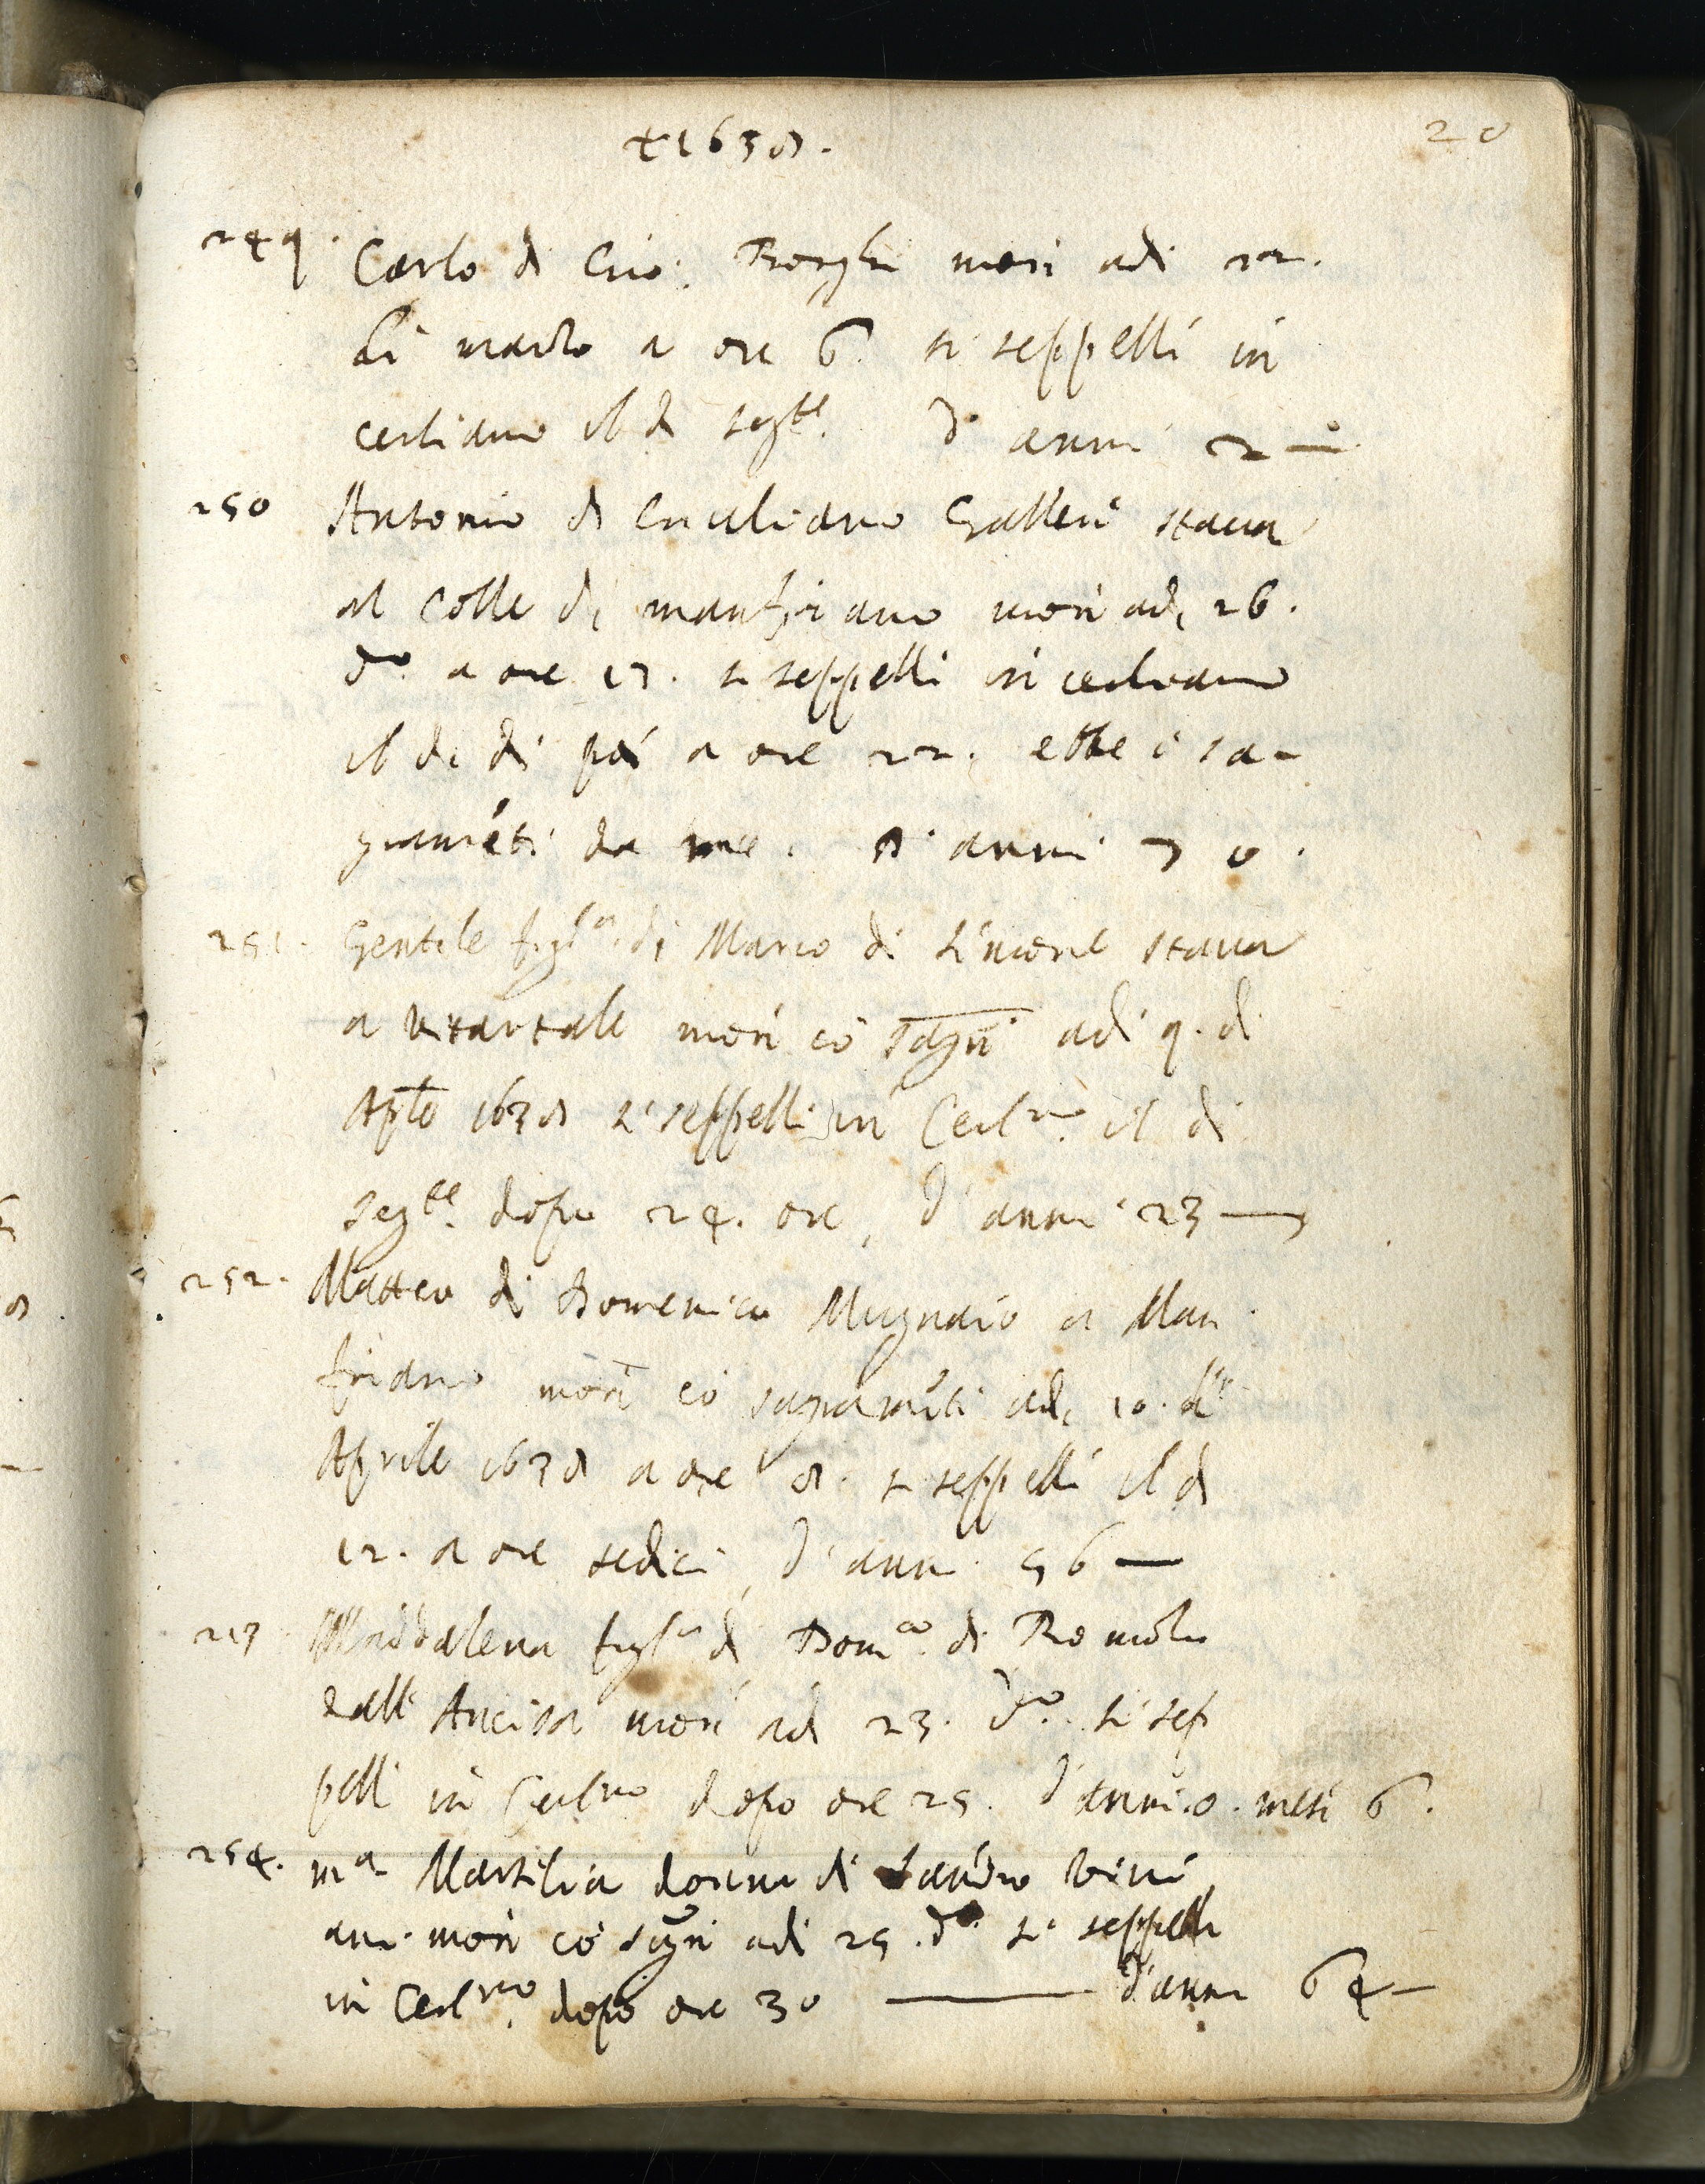 + 1638.
20
249. Carlo di Gio: Borghi morì adi 22.
di marzo a ore 6. si seppellì in
certiano il dì segte. d'anni 2 —
250 Antonio di Giuliano Galleri staua
al colle di manfriano morì adi 26.
do. a ore 17. si seppellì in certiano
il dì di poi a ore 22. ebbe i sa-
gramēti da me. d'anni 70.
251. Gentile figla. di Marco di Simone staua
a morì cō sagri adi 9. di
Aple 1638 si seppellì in Certno. il dì
segte. dopo 24. ore, d'anni 23 —
252. Matteo di Domenico Mugnaio a Man
friano morì cō sagramēti adi 10. di
Aprile 1638 a ore 8. si seppellì il dì
12. a ore sedici, d'anni 56 —
253 Maddalena figla di Domco. di Romolo
dall'Ancisa morì adi 23. do. si sep
pellì in Certno dopo ore 25. d'anni.0. mesi 6.
254. ma Marsilia donna di Sandro
morì cō sagri adi 25. do. si seppellì
in Certno. dopo ore 30 — d'anni 64 —